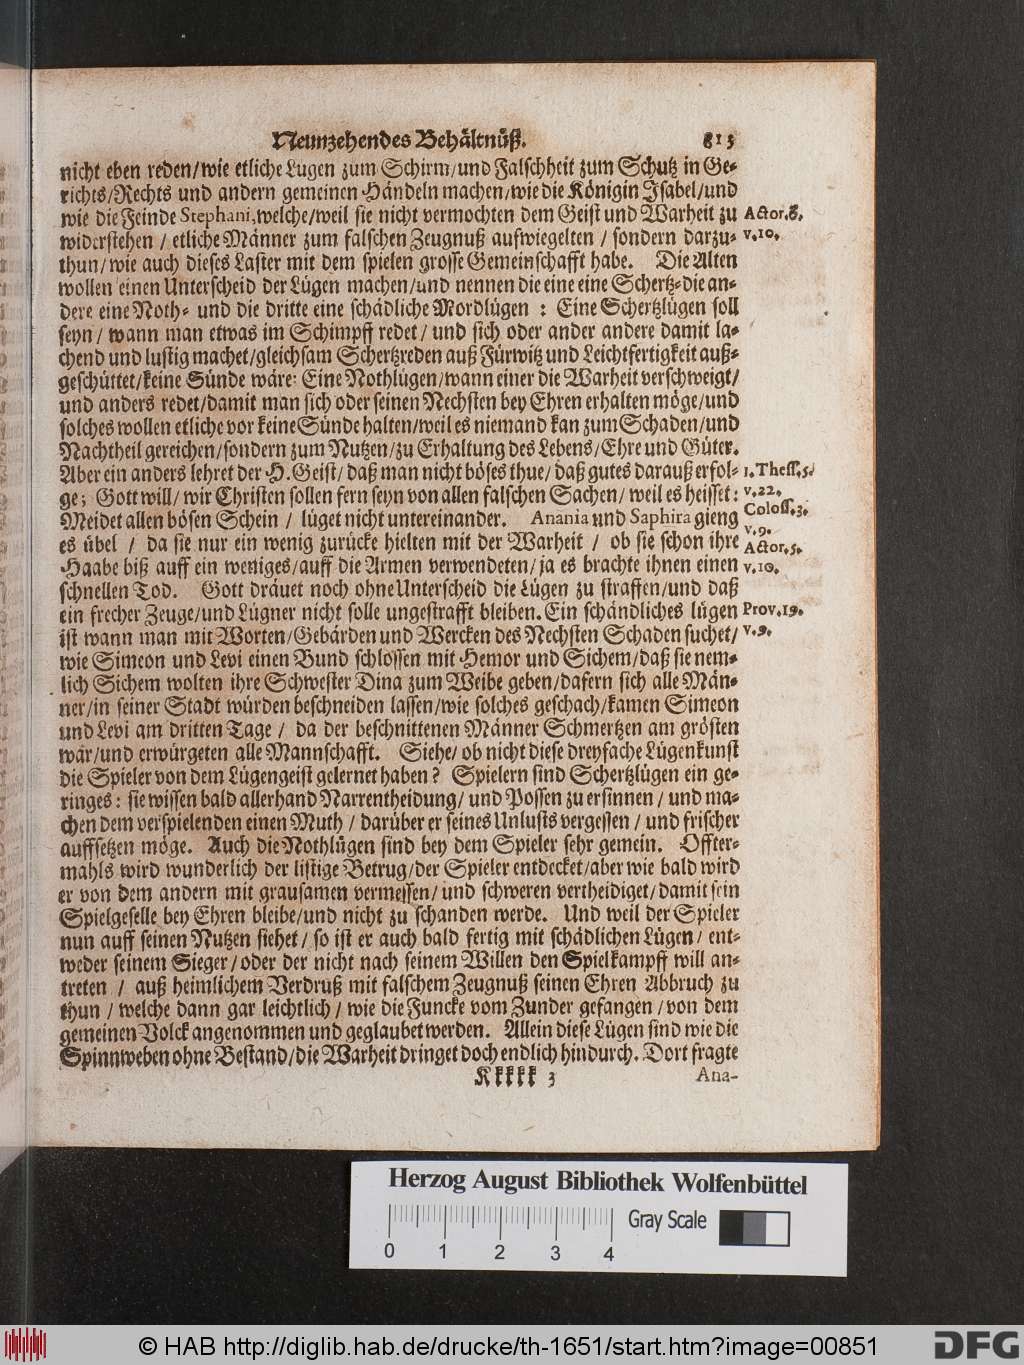 Neunzehendes Behältnüß. 813
nicht eben reden/wie etliche Lügen zum Schirm/und Falschheit zum Schutz in Ge-
richts/Rechts und andern gemeinen Händeln machen/wie die Königin Isabel/und
wie die Feinde Stephani, welche/weil sie nicht vermochten dem Geist und Warheit zu
Actor. 6.
widerstehen / etliche Männer zum falschen Zeugnuß aufwiegelten / sondern darzu-
v. 10.
thun/wie auch dieses Laster mit dem spielen grosse Gemeinschafft habe. Die Alten
wollen einen Unterscheid der Lügen machen/und nennen die eine eine Schertz-die an-
dere eine Noth- und die dritte eine schädliche Mordlügen : Eine Schertzlügen soll
seyn / wann man etwas im Schimpff redet / und sich oder ander andere damit la-
chend und lustig machet/gleichsam Schertzreden auß Fürwitz und Leichtfertigkeit auß-
geschüttet/keine Sünde wäre: Eine Nothlügen/wann einer die Warheit verschweigt/
und anders redet/damit man sich oder seinen Nechsten bey Ehren erhalten möge/und
solches wollen etliche vor keine Sünde halten/weil es niemand kan zum Schaden/und
Nachtheil gereichen/sondern zum Nutzen/zu Erhaltung des Lebens/Ehre und Güter.
Aber ein anders lehret der H. Geist/ daß man nicht böses thue/ daß gutes darauß erfol-
1. Thess. 5.
ge; Gott will/ wir Christen sollen fern seyn von allen falschen Sachen/ weil es heisset:
v. 22.
Meidet allen bösen Schein / lüget nicht untereinander. Anania und Saphira gieng
Coloss. 3.
v. 9.
es übel / da sie nur ein wenig zurücke hielten mit der Warheit / ob sie schon ihre
Actor. 5.
Haabe biß auff ein weniges/auff die Armen verwendeten/ja es brachte ihnen einen
v. 10.
schnellen Tod. Gott dräuet noch ohne Unterscheid die Lügen zu straffen/und daß
ein frecher Zeuge/und Lügner nicht solle ungestrafft bleiben. Ein schändliches lügen
Prov. 19.
ist wann man mit Worten/Gebärden und Wercken des Nechsten Schaden suchet/
v. 9.
wie Simeon und Levi einen Bund schlossen mit Hemor und Sichem/daß sie nem-
lich Sichem wolten ihre Schwester Dina zum Weibe geben/dafern sich alle Män-
ner/in seiner Stadt würden beschneiden lassen/wie solches geschach/kamen Simeon
und Levi am dritten Tage / da der beschnittenen Männer Schmertzen am grösten
wär/und erwürgeten alle Mannschafft. Siehe/ ob nicht diese dreyfache Lügenkunst
die Spieler von dem Lügengeist gelernet haben? Spielern sind Schertzlügen ein ge-
ringes: sie wissen bald allerhand Narrentheidung/ und Possen zu ersinnen / und ma-
chen dem verspielenden einen Muth / darüber er seines Unlusts vergessen / und frischer
auffsetzen möge. Auch die Nothlügen sind bey dem Spieler sehr gemein. Offter-
mahls wird wunderlich der listige Betrug/der Spieler entdecket/aber wie bald wird
er von dem andern mit grausamen vermessen/ und schweren vertheidiget/damit sein
Spielgeselle bey Ehren bleibe/und nicht zu schanden werde. Und weil der Spieler
nun auff seinen Nutzen siehet/ so ist er auch bald fertig mit schädlichen Lügen/ ent-
weder seinem Sieger/oder der nicht nach seinem Willen den Spielkampff will an-
treten / auß heimlichem Verdruß mit falschem Zeugnuß seinen Ehren Abbruch zu
thun / welche dann gar leichtlich / wie die Funcke vom Zunder gefangen/von dem
gemeinen Volck angenommen und geglaubet werden. Allein diese Lügen sind wie die
Spinnweben ohne Bestand/die Warheit dringet doch endlich hindurch. Dort fragte
Kkkkk 3 Ana-
Herzog August Bibliothek Wolfenbüttel
Gray Scale
0 1 2 3 4
© HAB http://diglib.hab.de/drucke/th-1651/start.htm?image=00851
DFG